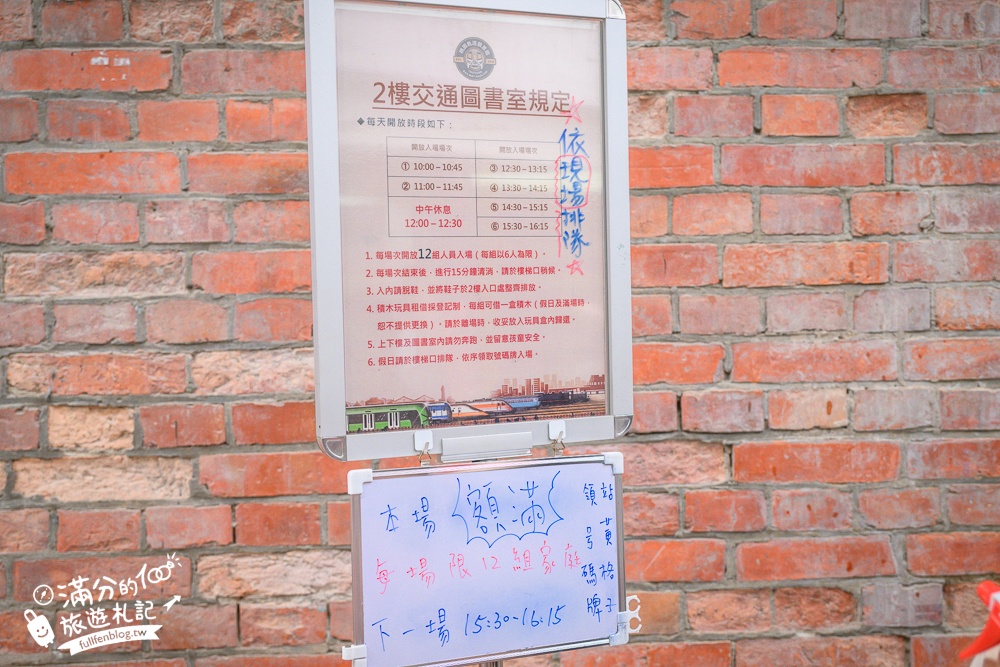 2樓交通圖書室規定
◆每天開放時段如下：
開放入場場次 開放入場場次
① 10:00－10:45 ③ 12:30－13:15
② 11:00－11:45 ④ 13:30－14:15
中午休息
12:00－12:30
⑤ 14:30－15:15
⑥ 15:30－16:15
依現場排隊
1. 每場次開放12組人員入場（每組以6人為限）。
2. 每場次結束後，進行15分鐘清消，請於樓梯口稍候。
3. 入內請脫鞋，並將鞋子於2樓入口處整齊排放。
4. 積木玩具租借採登記制，每組可借一盒積木（假日及滿場時，
恕不提供更換）。請於離場時，收妥放入玩具盒內歸還。
5. 上下樓及圖書室內請勿奔跑，並留意孩童安全。
6. 假日請於樓梯口排隊，依序領取號碼牌入場。
本場 額滿
每場限12組家庭
下一場 15:30-16:15
站黃格子
領号碼牌
滿分的
旅遊札記
fullfenblog.tw